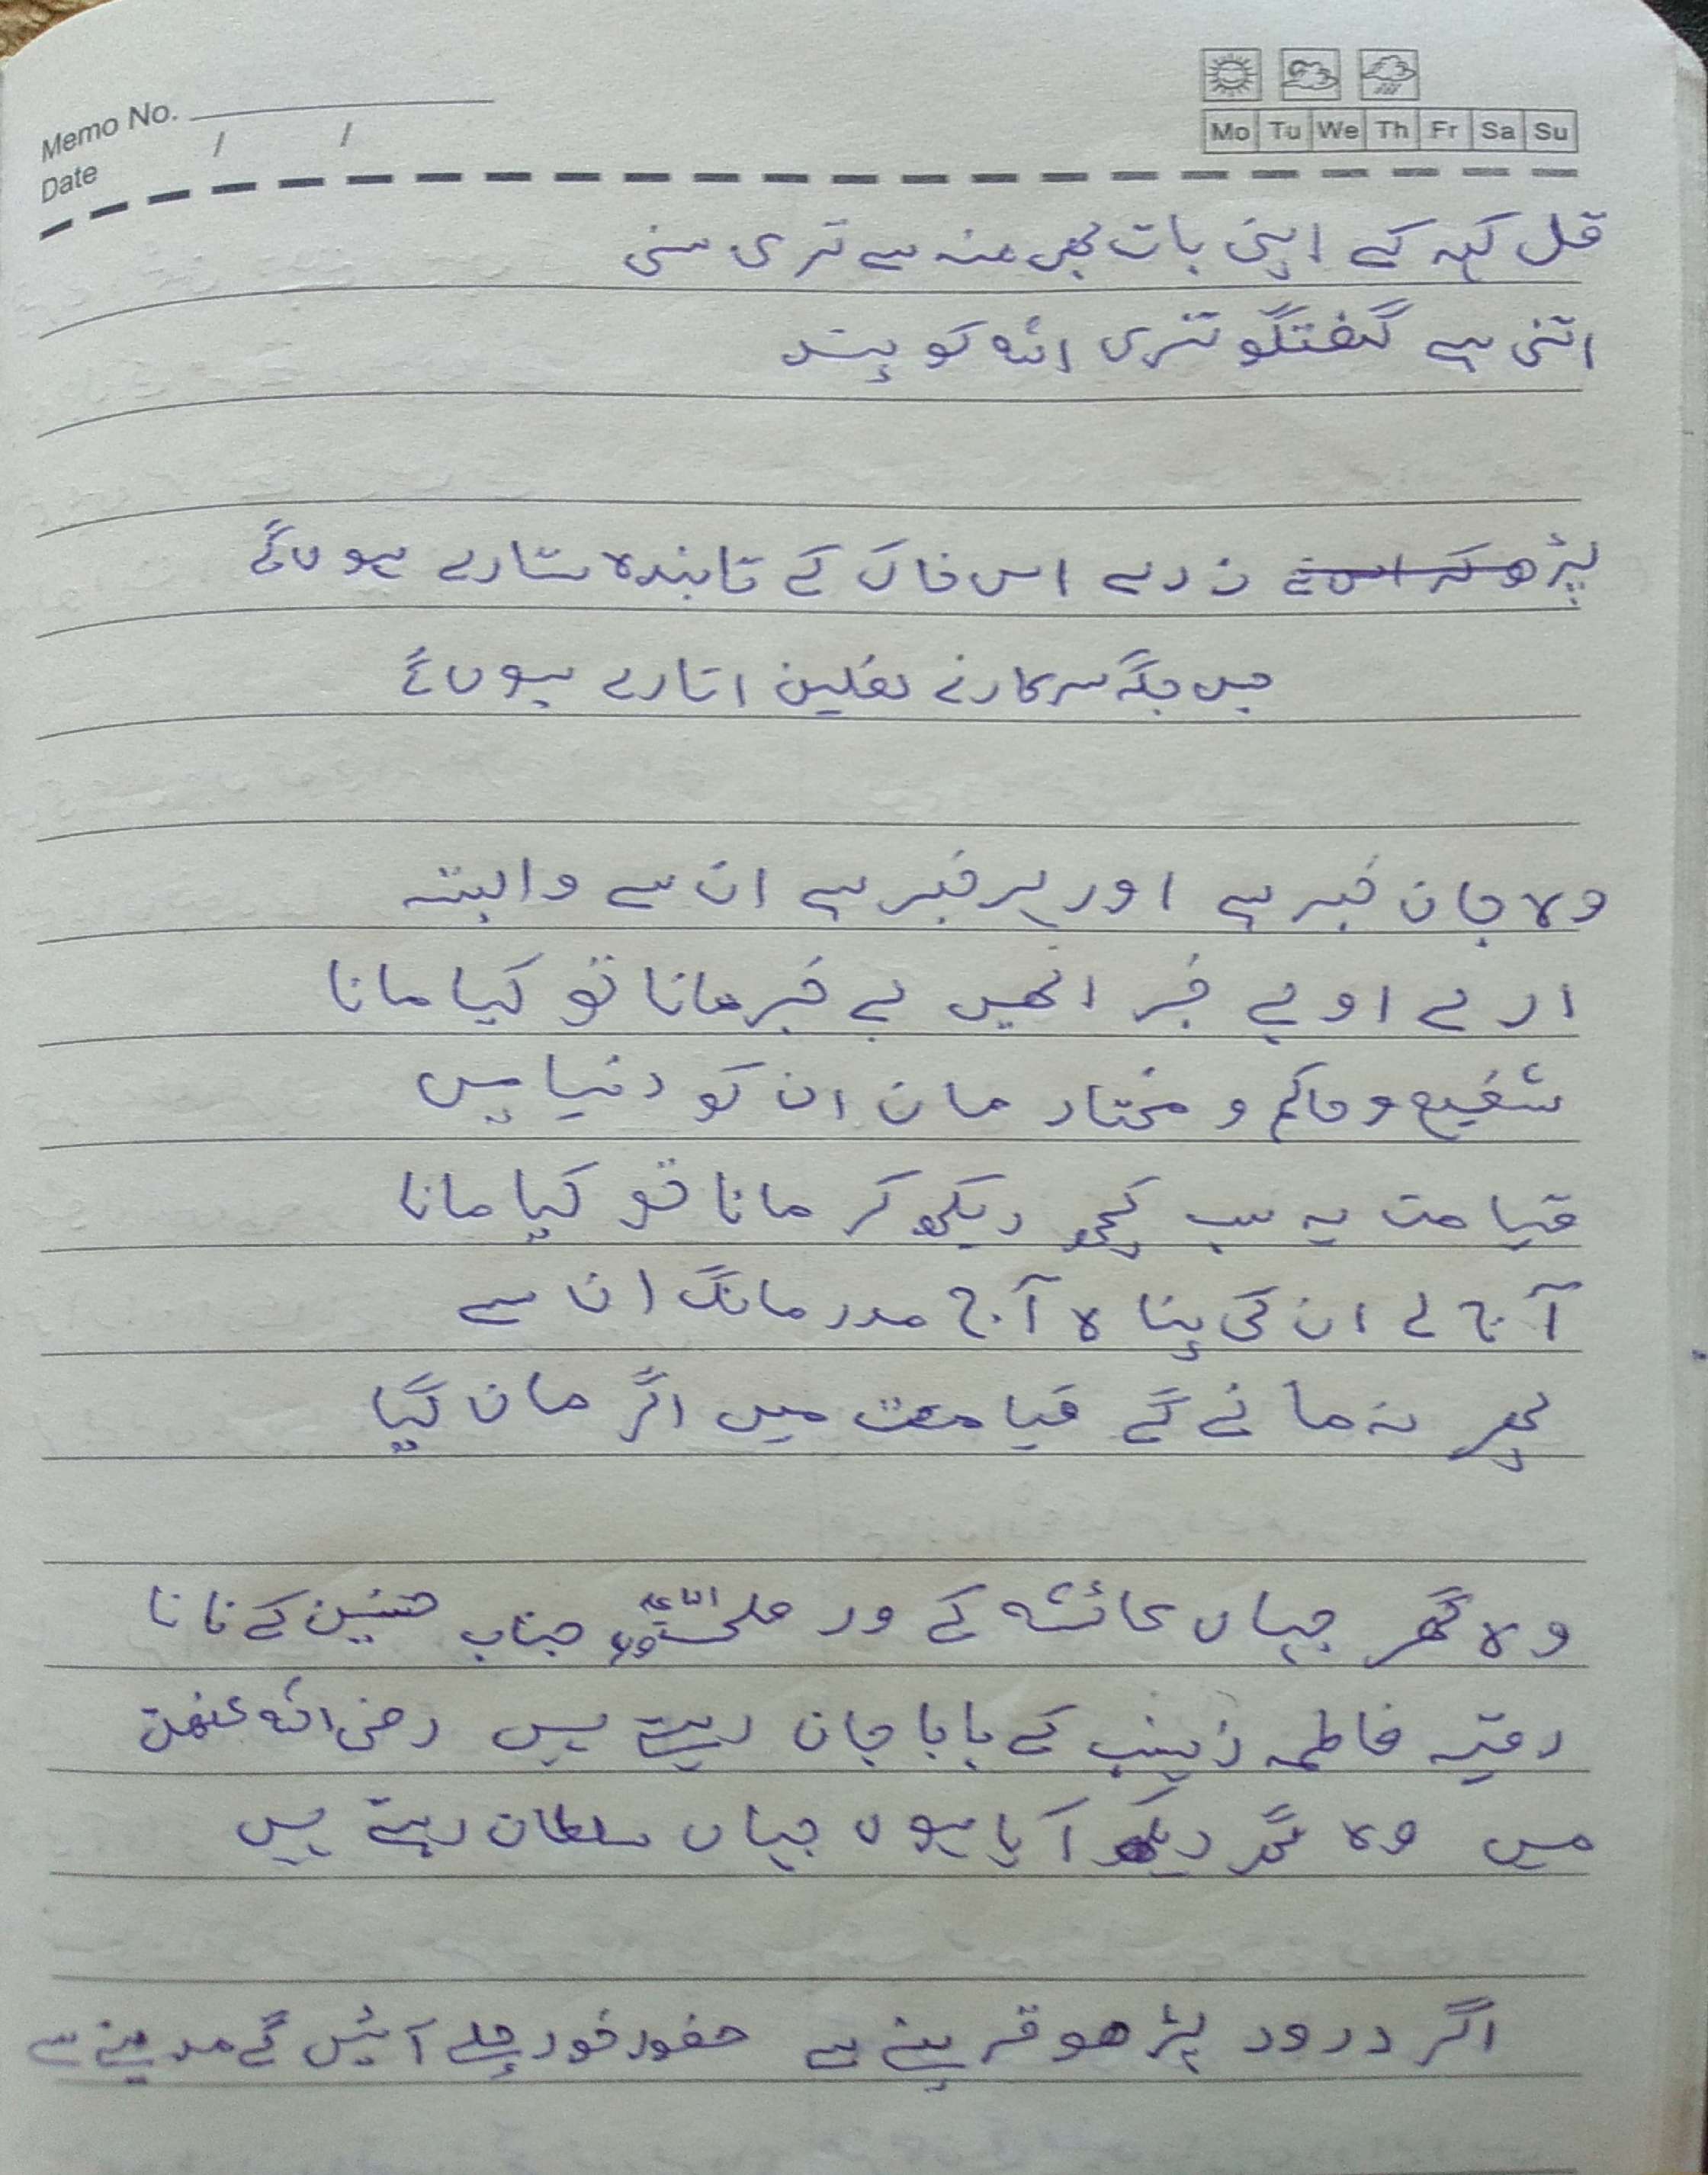 Memo No.
Date / /
Mo Tu We Th Fr Sa Su
قل کہہ کے اپنی بات بھی منہ سے تری سنی
اتنی ہے گفتگو تری اللہ کو پسند
پڑھ کر اس نے ذرے اس خاک کے تابندہ ستارے ہوں گے
جس جگہ سرکار نے نعلین اتارے ہوں گے
وہ جان خبر ہے اور ہر خبر ہے ان سے وابستہ
ارے او بے خبر انھیں بے خبر مانا تو کیا مانا
شفیع و حاکم و مختار مان ان کو دنیا میں
قیامت پہ سب کچھ دیکھ کر مانا تو کیا مانا
آج لے ان کی پناہ آج مدد مانگ ان سے
پھر نہ مانے گے قیامت میں اگر مان گیا
وہ گھر جہاں عائشہ کے ور صلی اللہ علیہ وسلم جناب حسنین کے نانا
رقیہ فاطمہ زینب کے بابا جان رہتے ہیں رضی اللہ عنھن
میں وہ گھر دیکھ آیا ہوں جہاں سلطان رہتے ہیں
اگر درود پڑھو قرینے سے حضور خود چلے آئیں گے مدینے سے